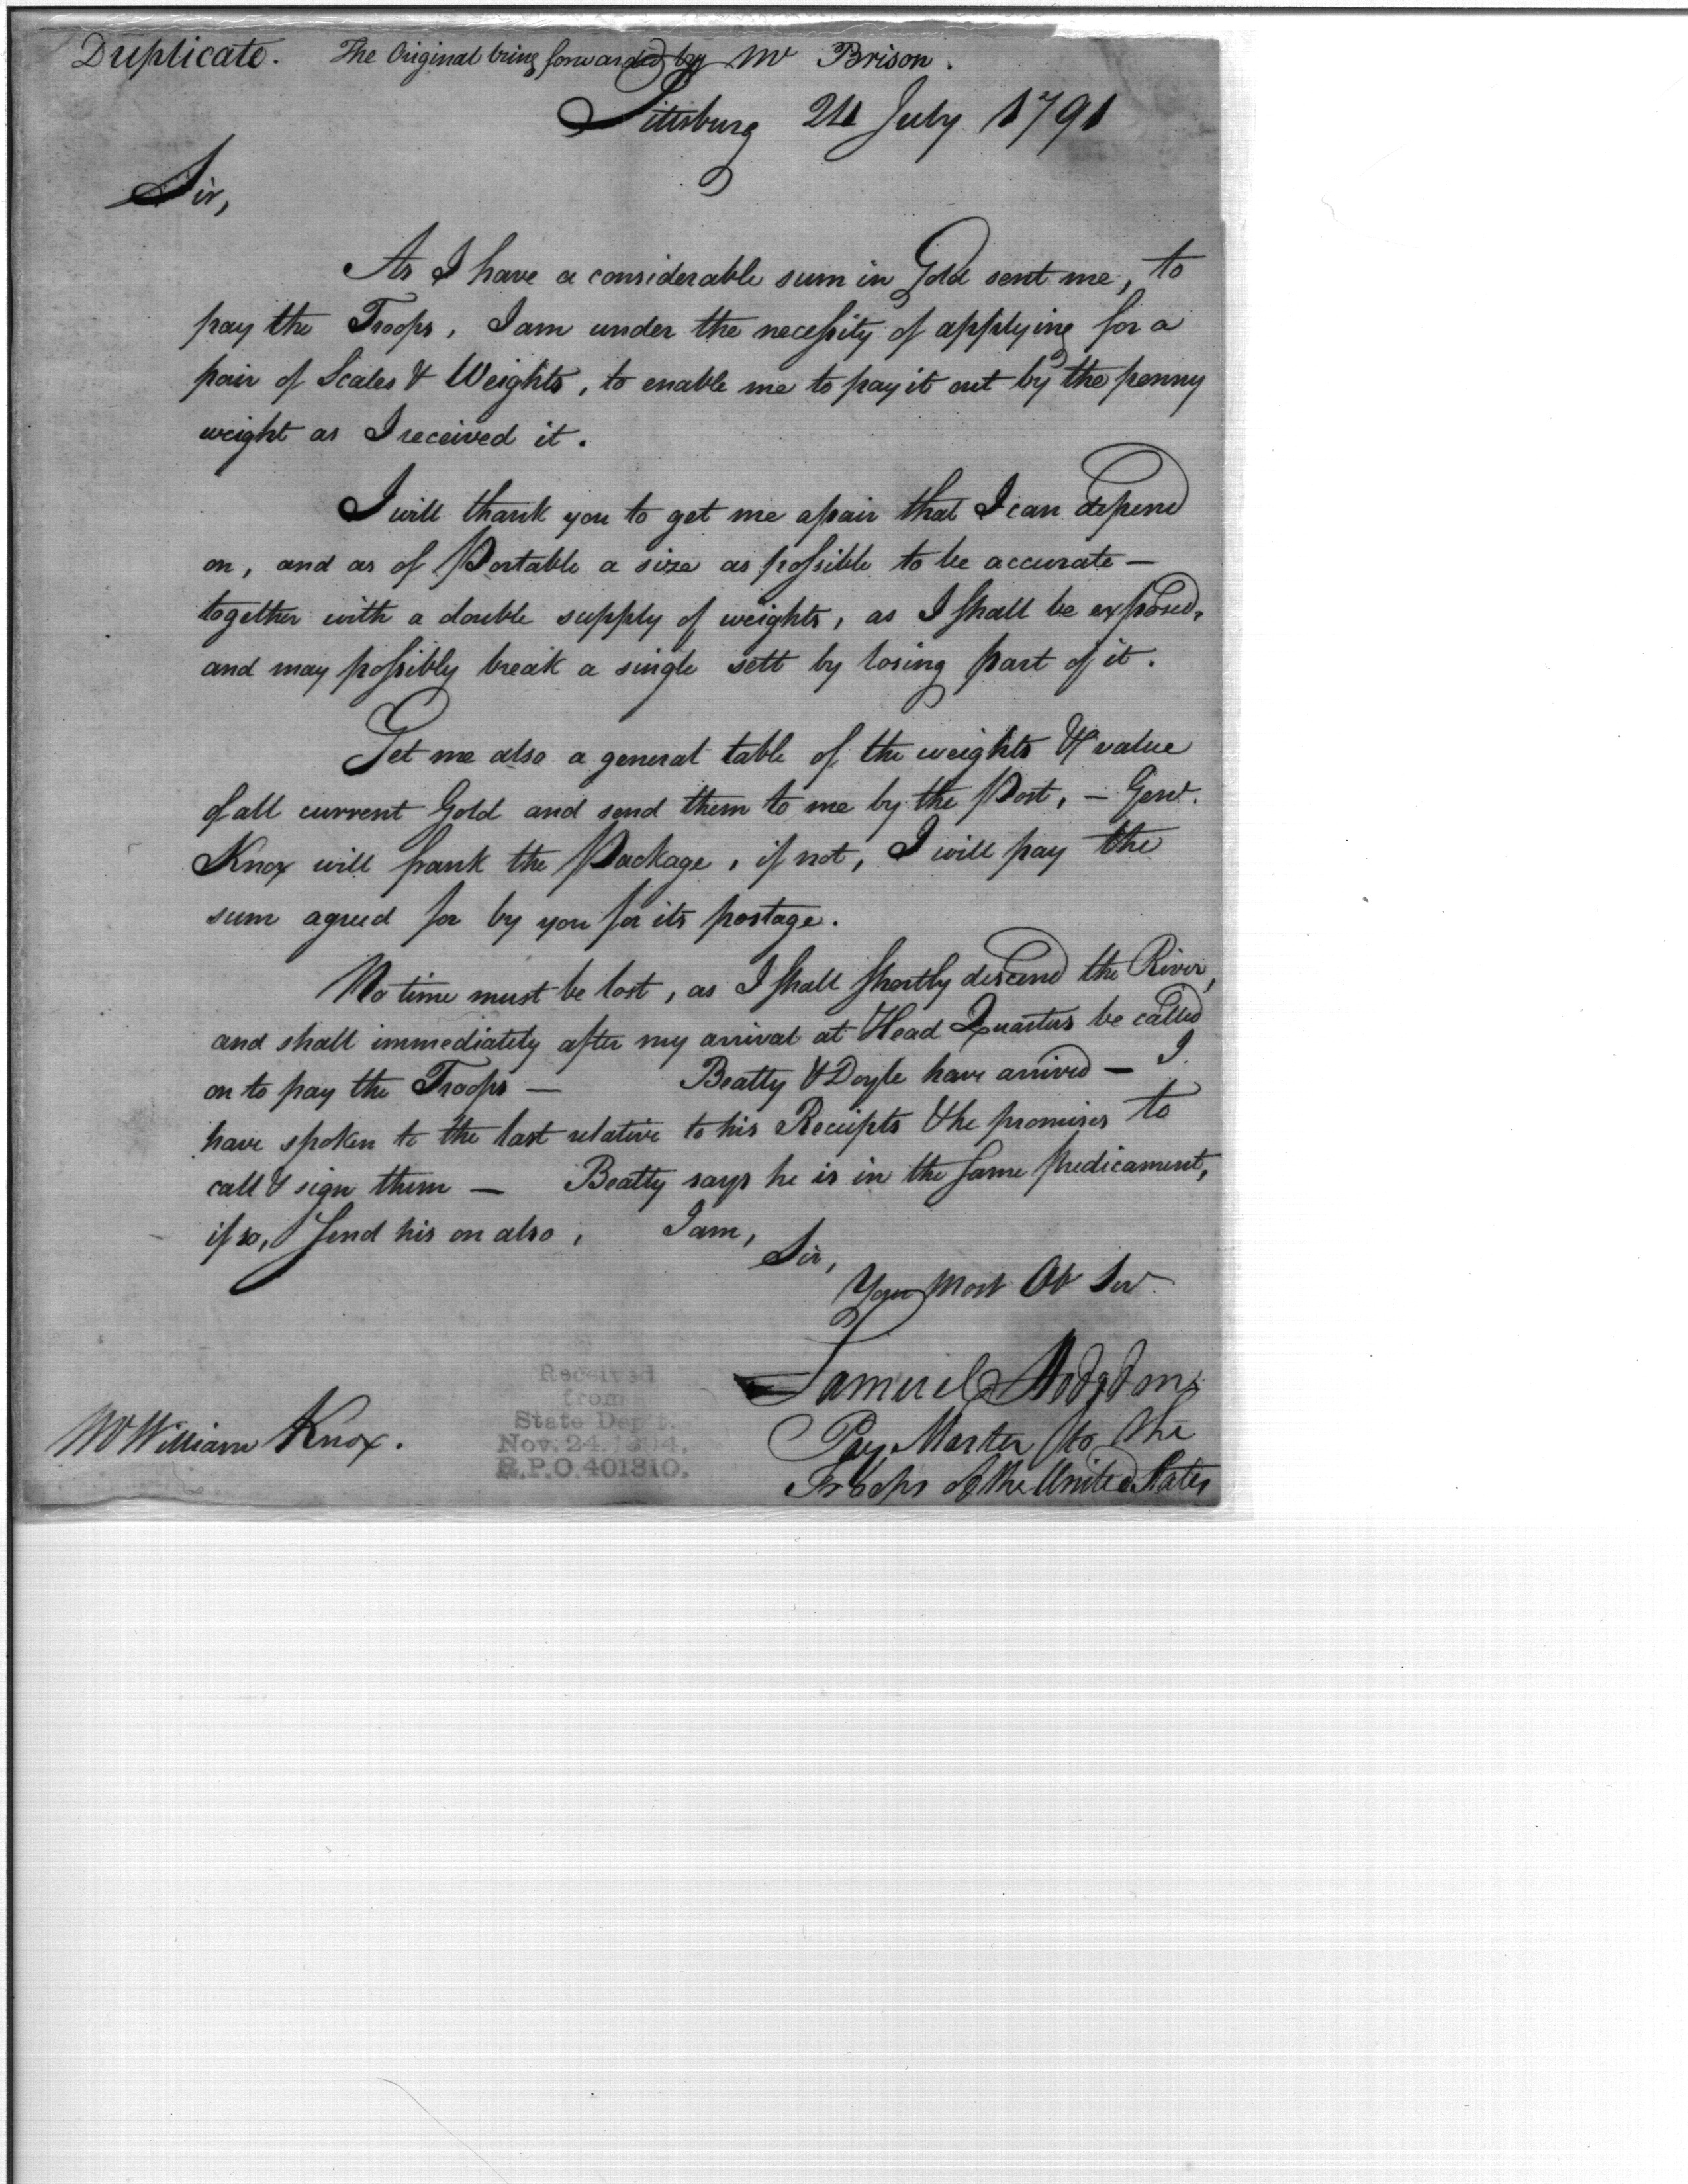 Duplicate. The Original being forwarded by Mr Brison.
Pittsburg 24 July 1791
Sir,
As I have a considerable sum in Gold sent me, to
pay the Troops, I am under the necessity of applying for a
pair of Scales & Weights, to enable me to pay it out by the penny
weight as I received it.
I will thank you to get me a pair that I can depend
on, and as of Portable a size as possible to be accurate —
together with a double supply of weights, as I shall be exposed,
and may possibly break a single sett by losing part of it.
Get me also a general table of the weights & value
of all current Gold and send them to me by the Post, — Genl.
Knox will frank the Package, if not, I will pay the
sum agreed for by you for its postage.
No time must be lost, as I shall shortly descend the River,
and shall immediately after my arrival at Head Quarters be called
on to pay the Troops — Beatty & Doyle have arrived — I
have spoken to the last relative to his Receipts & he promises to
call & sign them — Beatty says he is in the same predicament,
if so, send his on also, I am,
Sir,
Your Most Ob Ser
Samuel Hodgdon
Pay Master to the
Troops of the United States
Mr William Knox.
Received
from
State Dep't.
Nov. 24. 1894.
R.P.O. 401310.